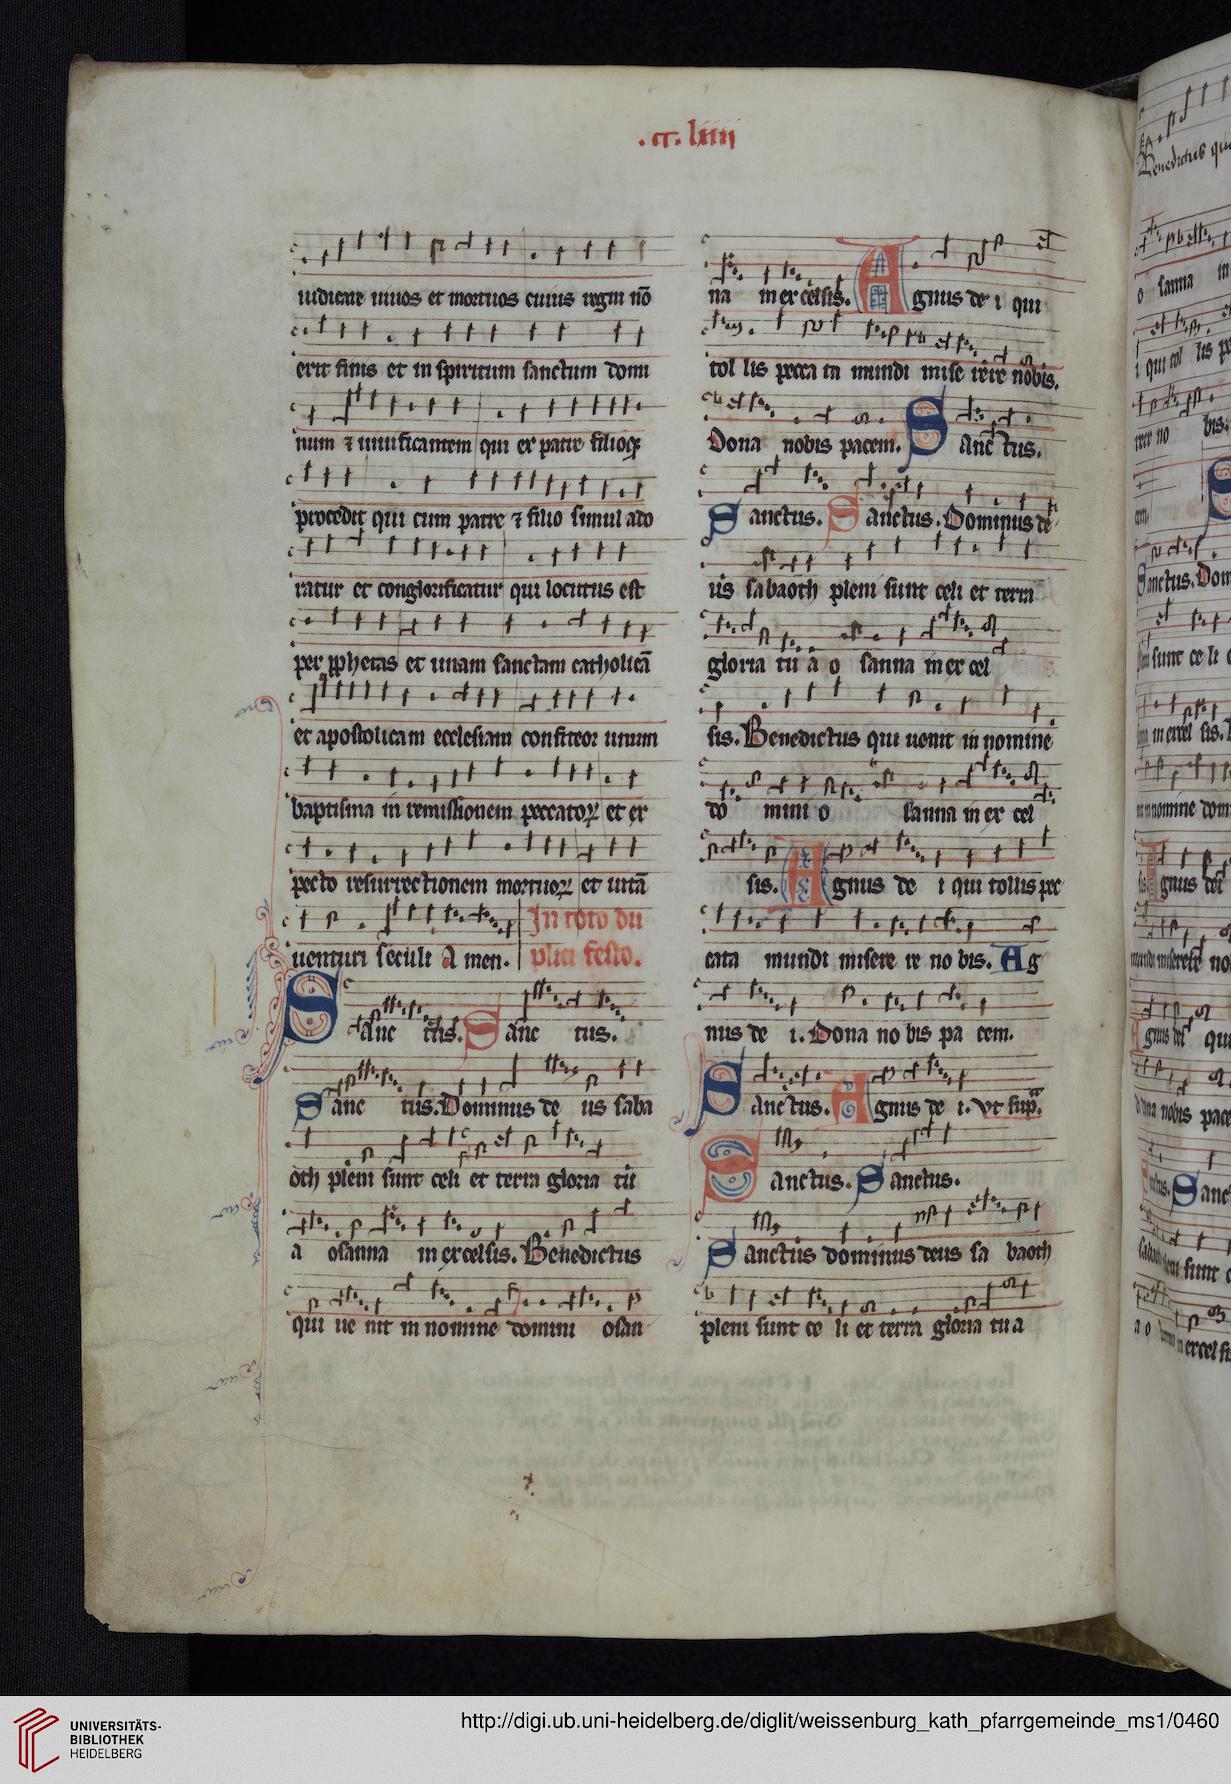 .cc. liiii
iudicare uiuos et mortuos cuius regni nō
erit finis et in spiritum sanctum domi
num ⁊ uiuificantem qui ex patre filioqȝ
procedit qui cum patre ⁊ filio simul ado
ratur et conglorificatur qui locutus est
per prophetas et unam sanctam catholicā
et apostolicam ecclesiam confiteor unum
baptisma in remissionem peccatoꝝ et ex
pecto resurrectionem mortuoꝝ et uitā
uenturi seculi A men.
In toto du
plici festo.
Sanc tus. Sanc tus.
Sanc tus. Dominus de us saba
oth pleni sunt celi et terra gloria tu
a osanna in excelsis. Benedictus
qui ue nit in nomine domini osan
na in excelsis. Agnus de i qui
tol lis pecca ta mundi mise rere nobis.
Dona nobis pacem. Sanctus.
Sanctus. Sanctus. Dominus de
us sabaoth pleni sunt celi et terra
gloria tu a o sanna in ex cel
sis. Benedictus qui uenit in nomine
do mini o sanna in ex cel
sis. Agnus de i qui tollis pec
cata mundi misere re no bis. Ag
nus de i. Dona no bis pa cem.
Sanctus. Agnus de i. Vt supᵃ.
Sanctus. Sanctus.
Sanctus dominus deus sa baoth
pleni sunt ce li et terra gloria tu a
Benedictus qui
o sanna in
i qui tol lis pe
rere no bis.
Sanctus. Dom
sunt ce li
in excel sis.
in nomine dom
sis Agnus dei
mundi miserere no
Agnus dei qui
dona nobis pace
Sanc
sunt
a o
in excel si
UNIVERSITÄTS-
BIBLIOTHEK
HEIDELBERG
http://digi.ub.uni-heidelberg.de/diglit/weissenburg_kath_pfarrgemeinde_ms1/0460